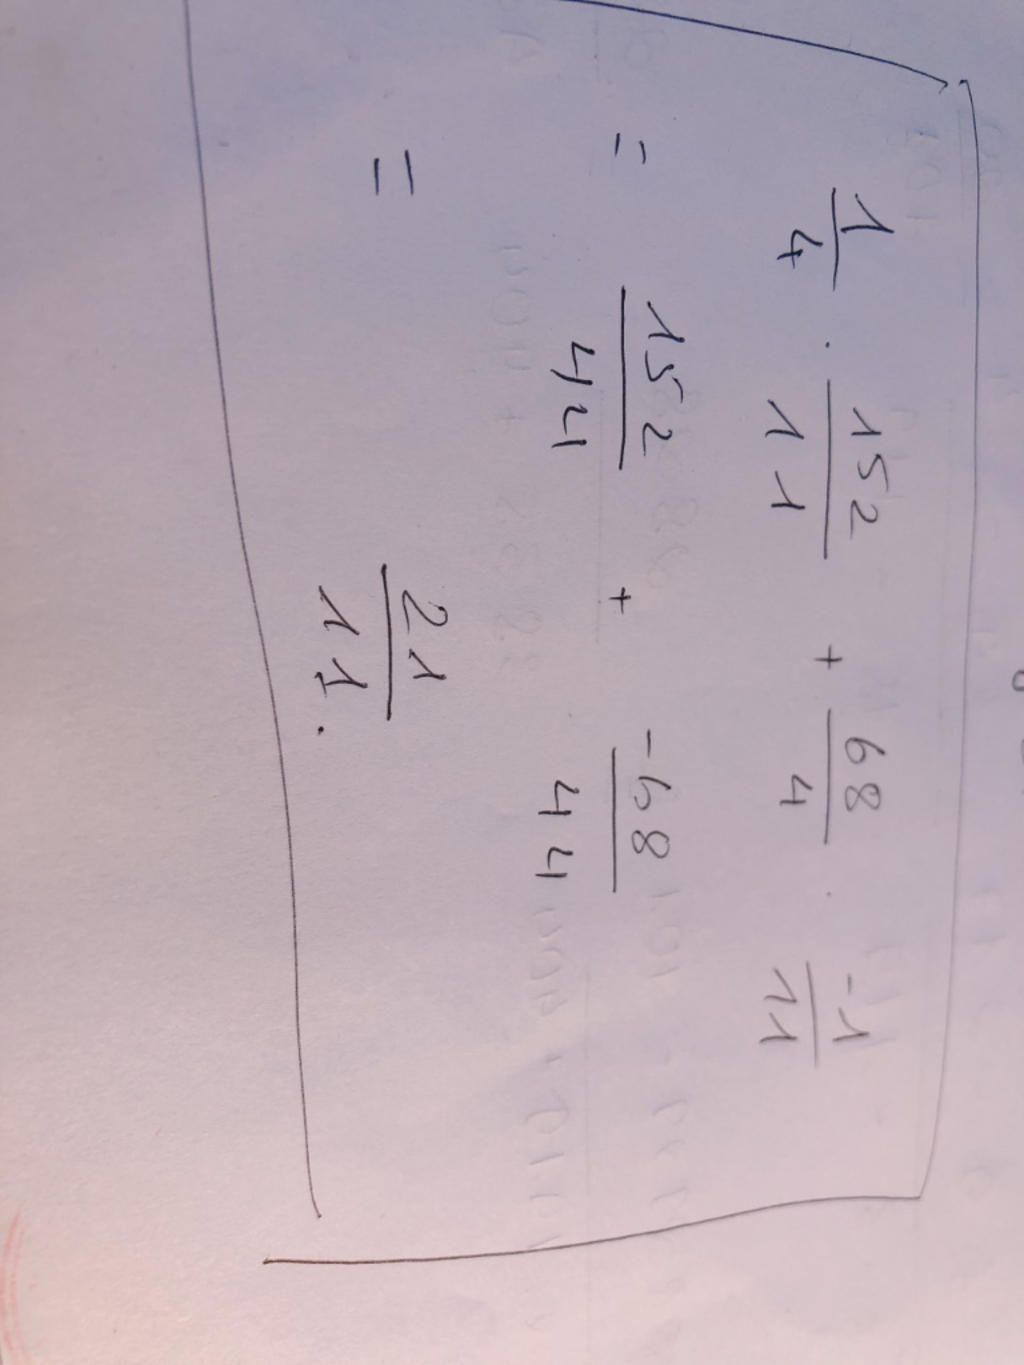 1/4 · 152/11 + 68/4 · -1/11
= 152/44 + -68/44
= 21/11.